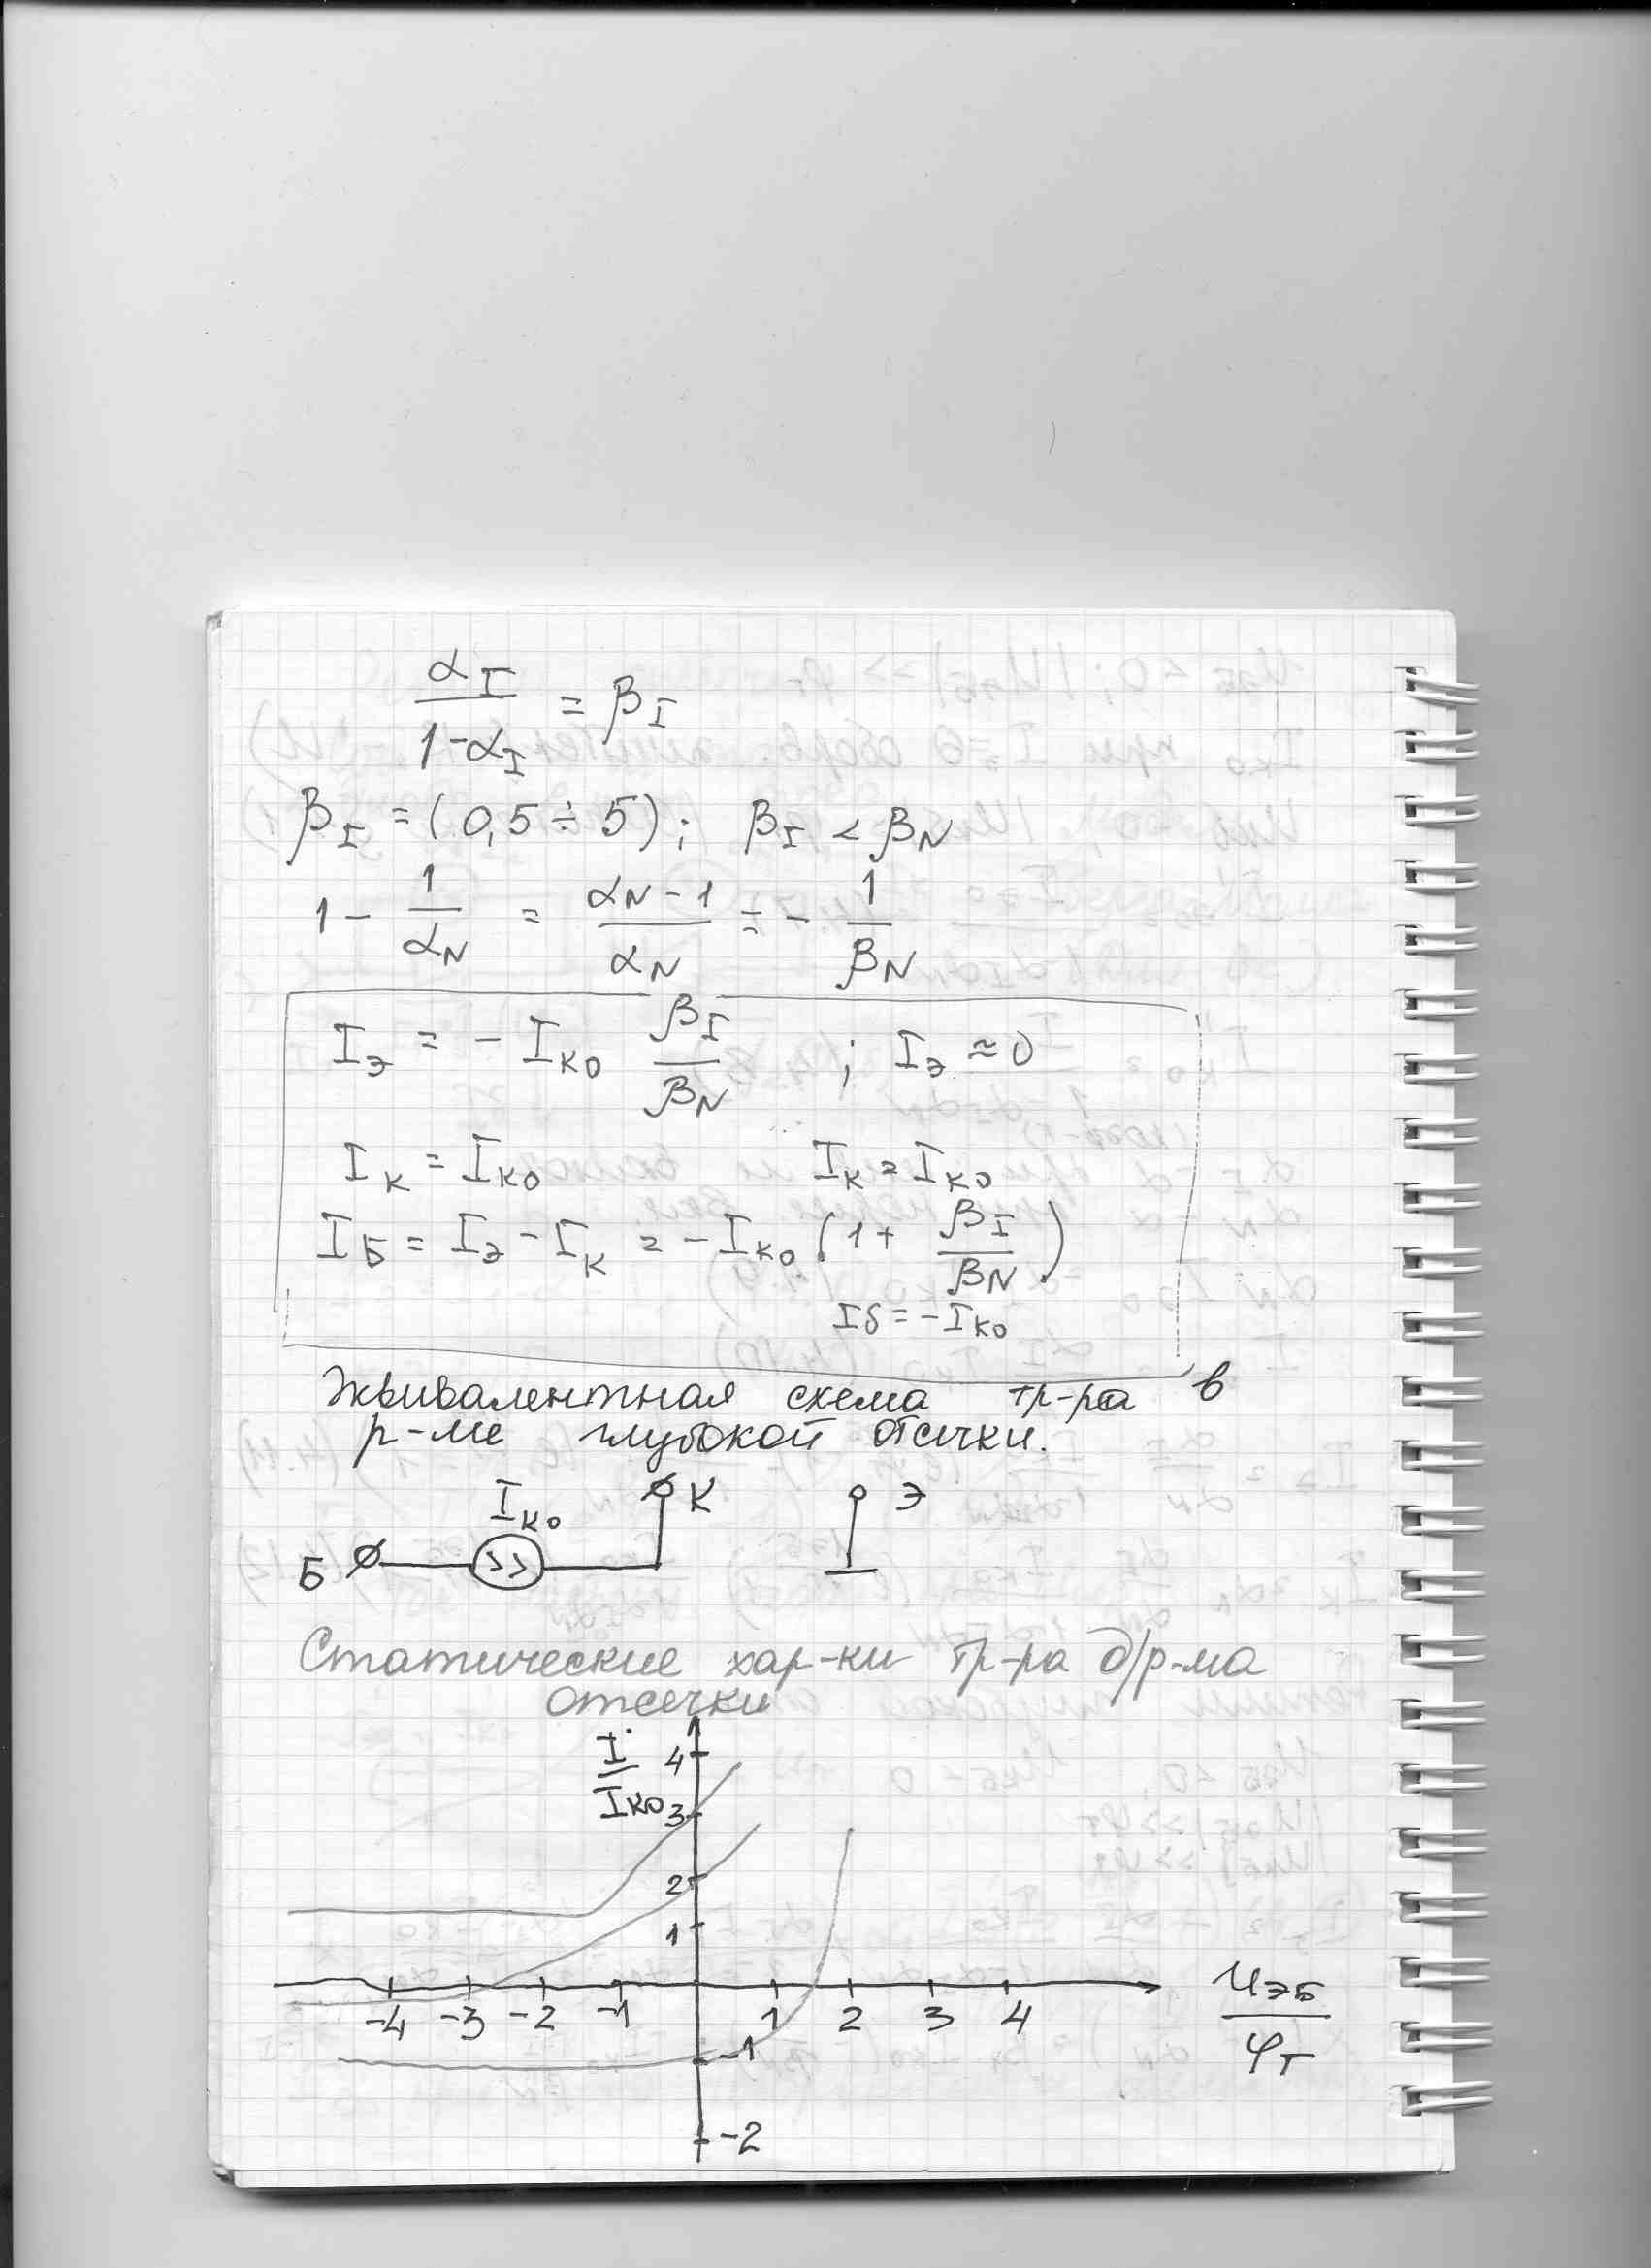 αI / (1-αI) = βI
βI = (0,5 ÷ 5); βI < βN
1 - 1/αN = (αN - 1)/αN ÷ - 1/βN
IЭ = - IК0 βI/βN ; IЭ ≈ 0
IК = IК0 IК = IК0
IБ = IЭ - IК = - IК0 (1 + βI/βN)
Iб = - IК0
Эквивалентная схема тр-ра в
р-ме глубокой отсечки.
IК0 К Э
Б
Статические хар-ки тр-ра д/р-ма
отсечки
I/IК0
4
3
2
1
-4 -3 -2 -1 1 2 3 4 UЭБ/φТ
-1
-2